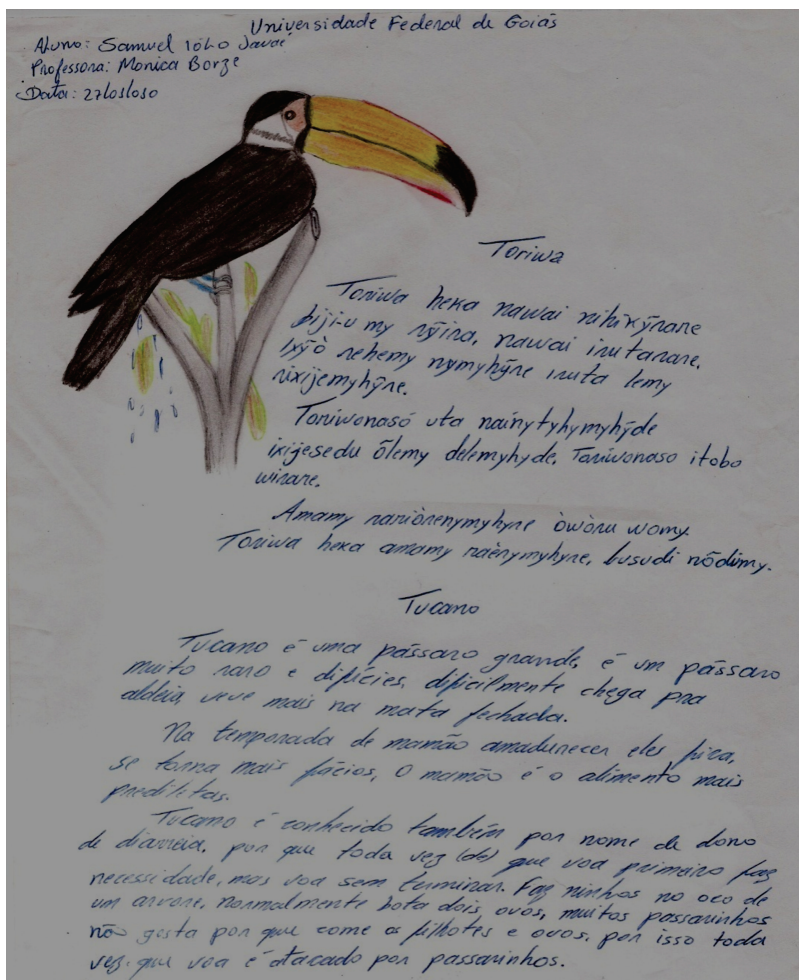 Universidade Federal de Goiás
Aluno: Samuel Javaé
Professora: Monica Borge
Data:
Toriwa
Toriwa heka nawai nihikỹrare
biji-u my rỹira, nawai irutarare,
Ixỹò rehemy rymyhỹre iruta lemy
rixijemyhỹre.
Toriwonasó uta rainytyhymyhỹde
ixijesedu õlemy delemyhyde, Toriwonaso itobo
wirare.
Amamy rariòrenymyhyre òwòru womy.
Toriwa heka amamy raènymyhyre, busudi nõdimy.
Tucano
Tucano é uma pássaro grande, é um pássaro
muito raro e difícies, dificilmente chega pra
aldeia, veve mais na mata fechada.
Na temporada de mamão amadurecer eles fica,
se torna mais fácios, O mamão é o alimento mais
predititas.
Tucano é conhecido também por nome de dono
de diarreia, por que toda vez (de) que voa primeiro faz
necessidade, mas voa sem terminar. Faz ninhos no oco de
um arvore, normalmente bota dois ovos, muitos passarinhos
não gosta por que come os filhotes e ovos, por isso toda
vez que voa é atacado por passarinhos.